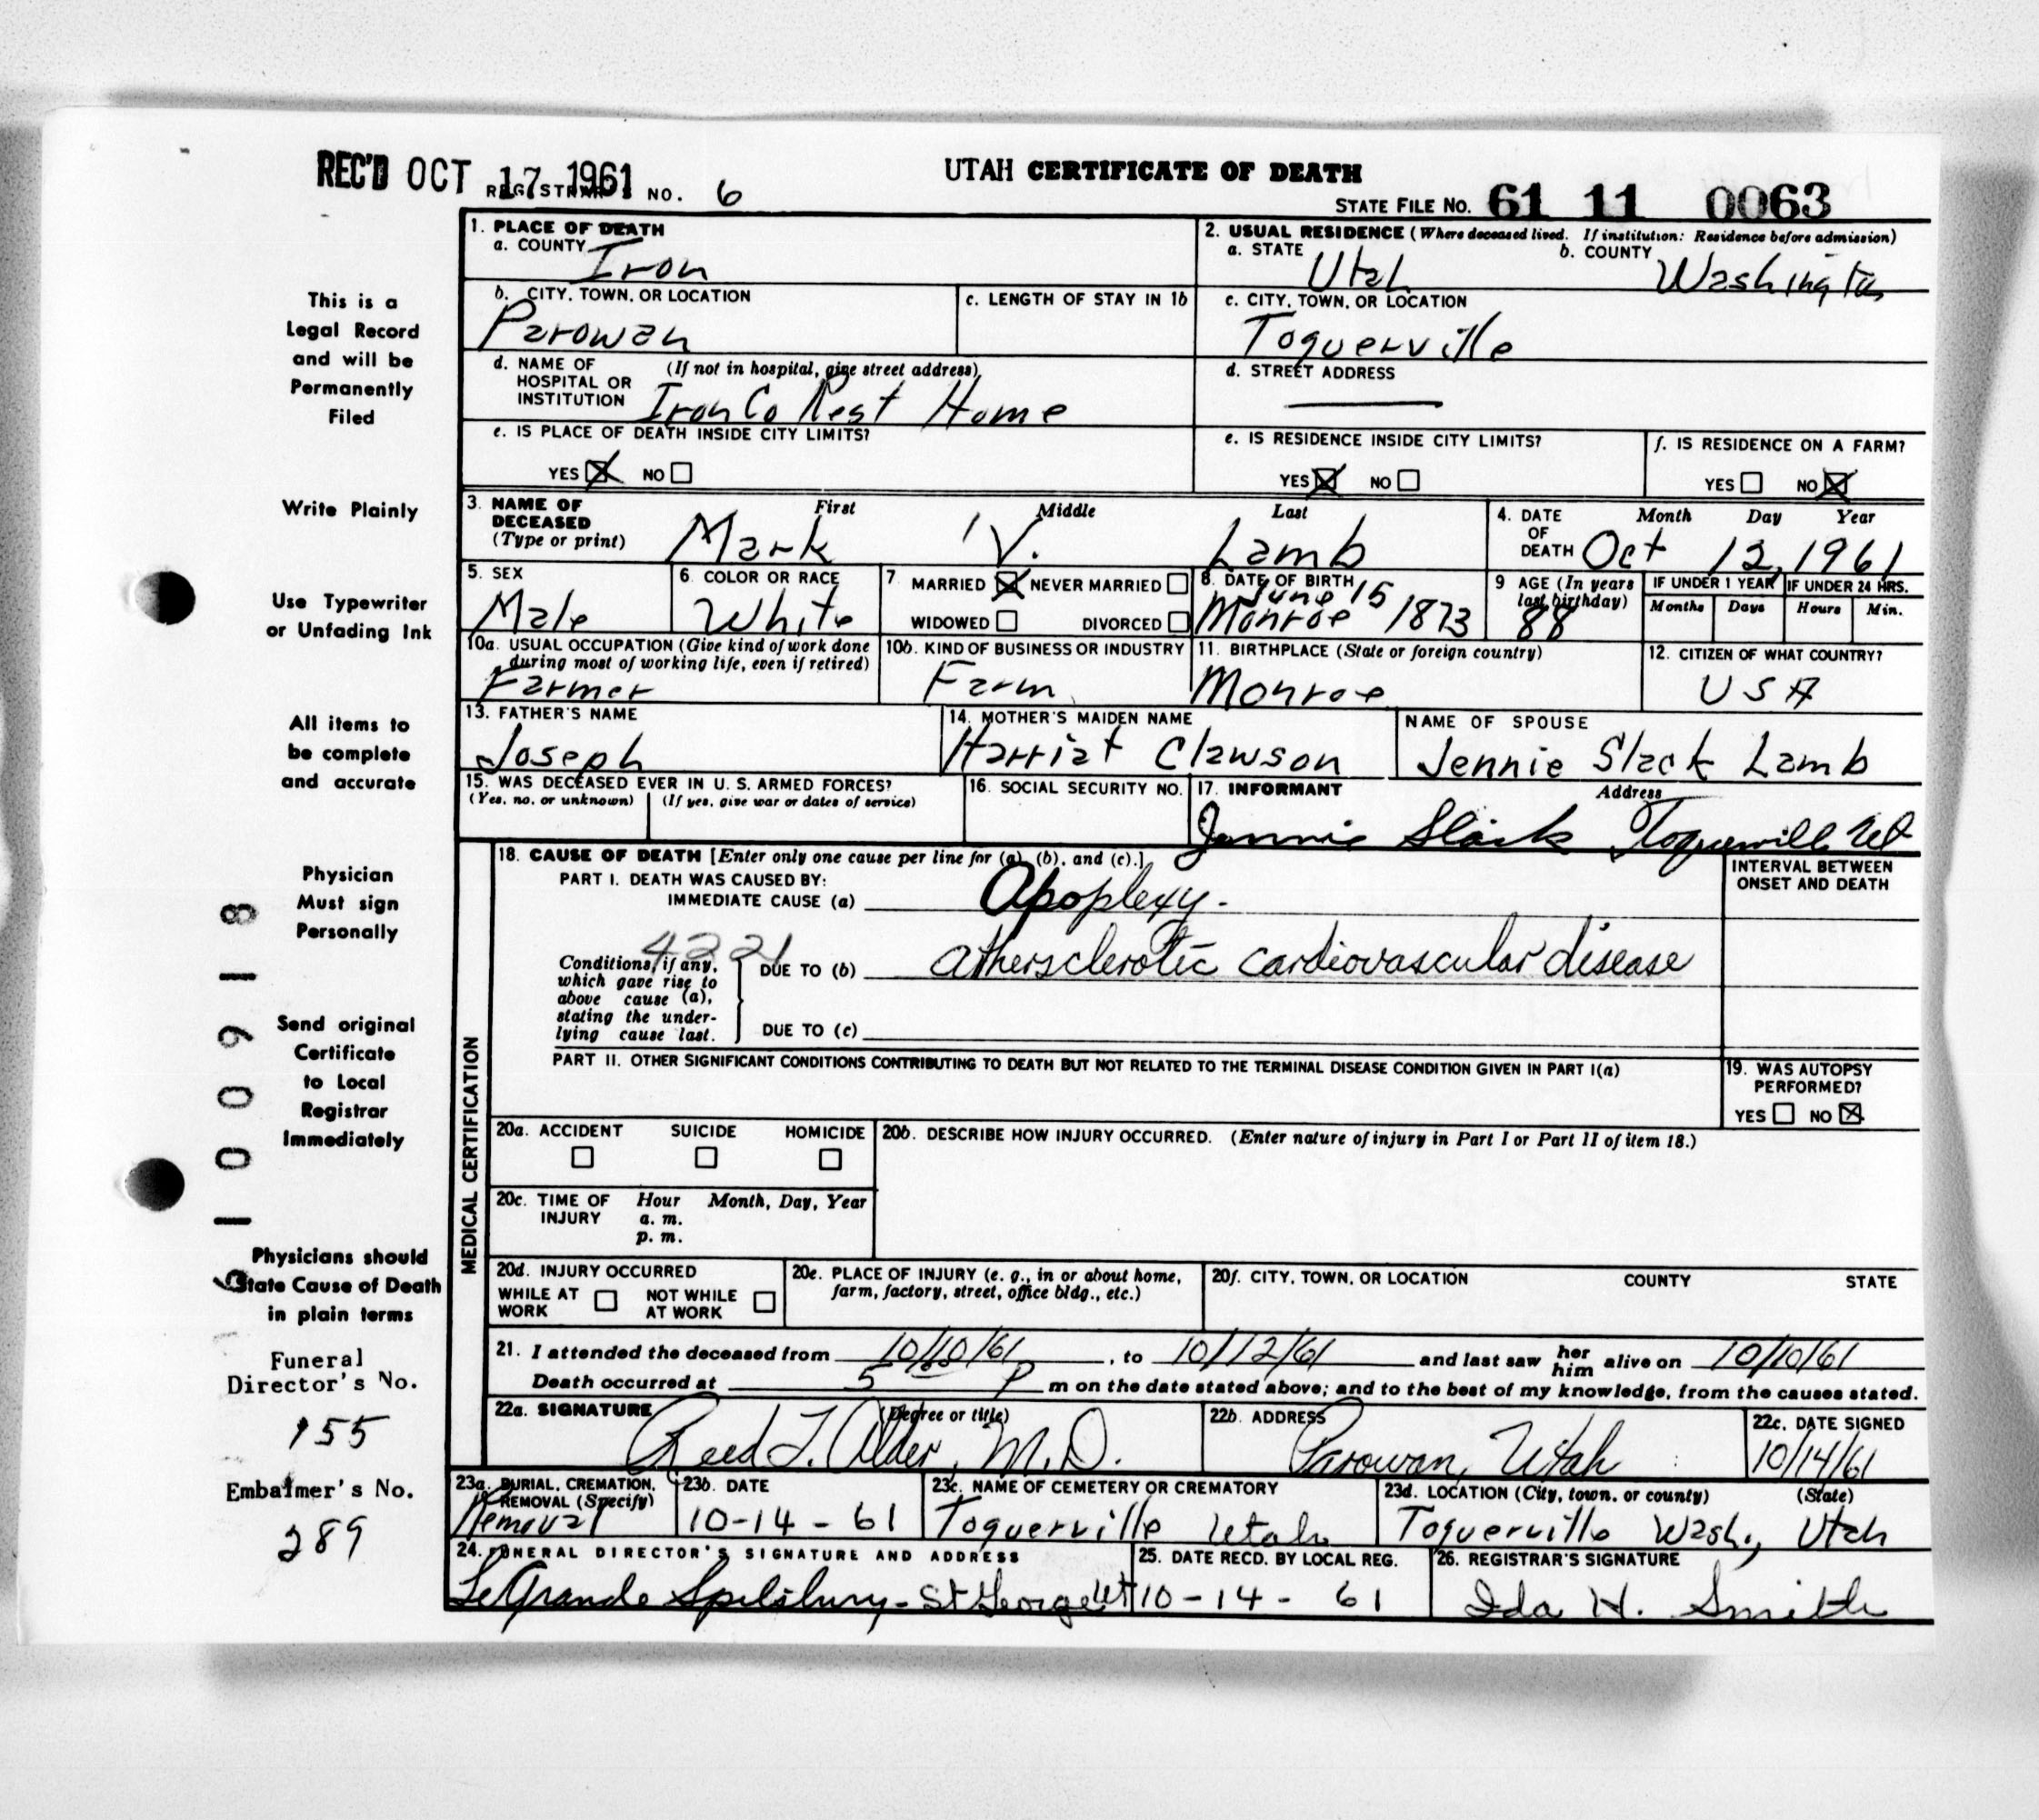 REC'D OCT 17 1961 REGISTRAR'S NO. 6
UTAH CERTIFICATE OF DEATH
STATE FILE NO. 61 11 0063
This is a
Legal Record
and will be
Permanently
Filed
Write Plainly
Use Typewriter
or Unfading Ink
All items to
be complete
and accurate
Physician
Must sign
Personally
Send original
Certificate
to Local
Registrar
Immediately
Physicians should
State Cause of Death
in plain terms
Funeral
Director's No.
155
Embalmer's No.
289
1. PLACE OF DEATH
a. COUNTY Iron
2. USUAL RESIDENCE (Where deceased lived. If institution: Residence before admission)
a. STATE Utah b. COUNTY Washington
b. CITY, TOWN, OR LOCATION
Parowan
c. LENGTH OF STAY IN 1b
c. CITY, TOWN, OR LOCATION
Toquerville
d. NAME OF HOSPITAL OR INSTITUTION (If not in hospital, give street address)
Iron Co Rest Home
d. STREET ADDRESS
e. IS PLACE OF DEATH INSIDE CITY LIMITS?
YES NO
e. IS RESIDENCE INSIDE CITY LIMITS?
YES NO
f. IS RESIDENCE ON A FARM?
YES NO
3. NAME OF DECEASED (Type or print)
First Middle Last
Mark V. Lamb
4. DATE OF DEATH Month Day Year
Oct 12, 1961
5. SEX
Male
6. COLOR OR RACE
White
7. MARRIED NEVER MARRIED
WIDOWED DIVORCED
8. DATE OF BIRTH
June 15
Monroe 1873
9 AGE (In years last birthday)
88
IF UNDER 1 YEAR
Months Days
IF UNDER 24 HRS.
Hours Min.
10a. USUAL OCCUPATION (Give kind of work done during most of working life, even if retired)
Farmer
10b. KIND OF BUSINESS OR INDUSTRY
Farm
11. BIRTHPLACE (State or foreign country)
Monroe
12. CITIZEN OF WHAT COUNTRY?
USA
13. FATHER'S NAME
Joseph
14. MOTHER'S MAIDEN NAME
Harriat Clawson
NAME OF SPOUSE
Jennie Slack Lamb
15. WAS DECEASED EVER IN U. S. ARMED FORCES?
(Yes, no, or unknown) (If yes, give war or dates of service)
16. SOCIAL SECURITY NO.
17. INFORMANT Address
Jennie Slack Toquerville Ut
MEDICAL CERTIFICATION
18. CAUSE OF DEATH [Enter only one cause per line for (a), (b), and (c).]
PART I. DEATH WAS CAUSED BY:
IMMEDIATE CAUSE (a) Apoplexy.
INTERVAL BETWEEN ONSET AND DEATH
4221
Conditions, if any, which gave rise to above cause (a), stating the underlying cause last.
DUE TO (b) atherosclerotic cardiovascular disease
DUE TO (c)
PART II. OTHER SIGNIFICANT CONDITIONS CONTRIBUTING TO DEATH BUT NOT RELATED TO THE TERMINAL DISEASE CONDITION GIVEN IN PART I(a)
19. WAS AUTOPSY PERFORMED?
YES NO
20a. ACCIDENT SUICIDE HOMICIDE
20b. DESCRIBE HOW INJURY OCCURRED. (Enter nature of injury in Part I or Part II of item 18.)
20c. TIME OF INJURY Hour Month, Day, Year
a. m.
p. m.
20d. INJURY OCCURRED
WHILE AT WORK NOT WHILE AT WORK
20e. PLACE OF INJURY (e. g., in or about home, farm, factory, street, office bldg., etc.)
20f. CITY, TOWN, OR LOCATION COUNTY STATE
21. I attended the deceased from 10/10/61, to 10/12/61 and last saw her him alive on 10/10/61
Death occurred at 5 P m on the date stated above; and to the best of my knowledge, from the causes stated.
22a. SIGNATURE (Degree or title)
Reed L. Alder, M.D.
22b. ADDRESS
Parowan, Utah
22c. DATE SIGNED
10/14/61
23a. BURIAL, CREMATION, REMOVAL (Specify)
Removal
23b. DATE
10-14-61
23c. NAME OF CEMETERY OR CREMATORY
Toquerville Utah
23d. LOCATION (City, town, or county) (State)
Toquerville Wash., Utah
24. FUNERAL DIRECTOR'S SIGNATURE AND ADDRESS
LeGrande Spilsbury - St George Ut
25. DATE RECD. BY LOCAL REG.
10-14-61
26. REGISTRAR'S SIGNATURE
Ida H. Smith